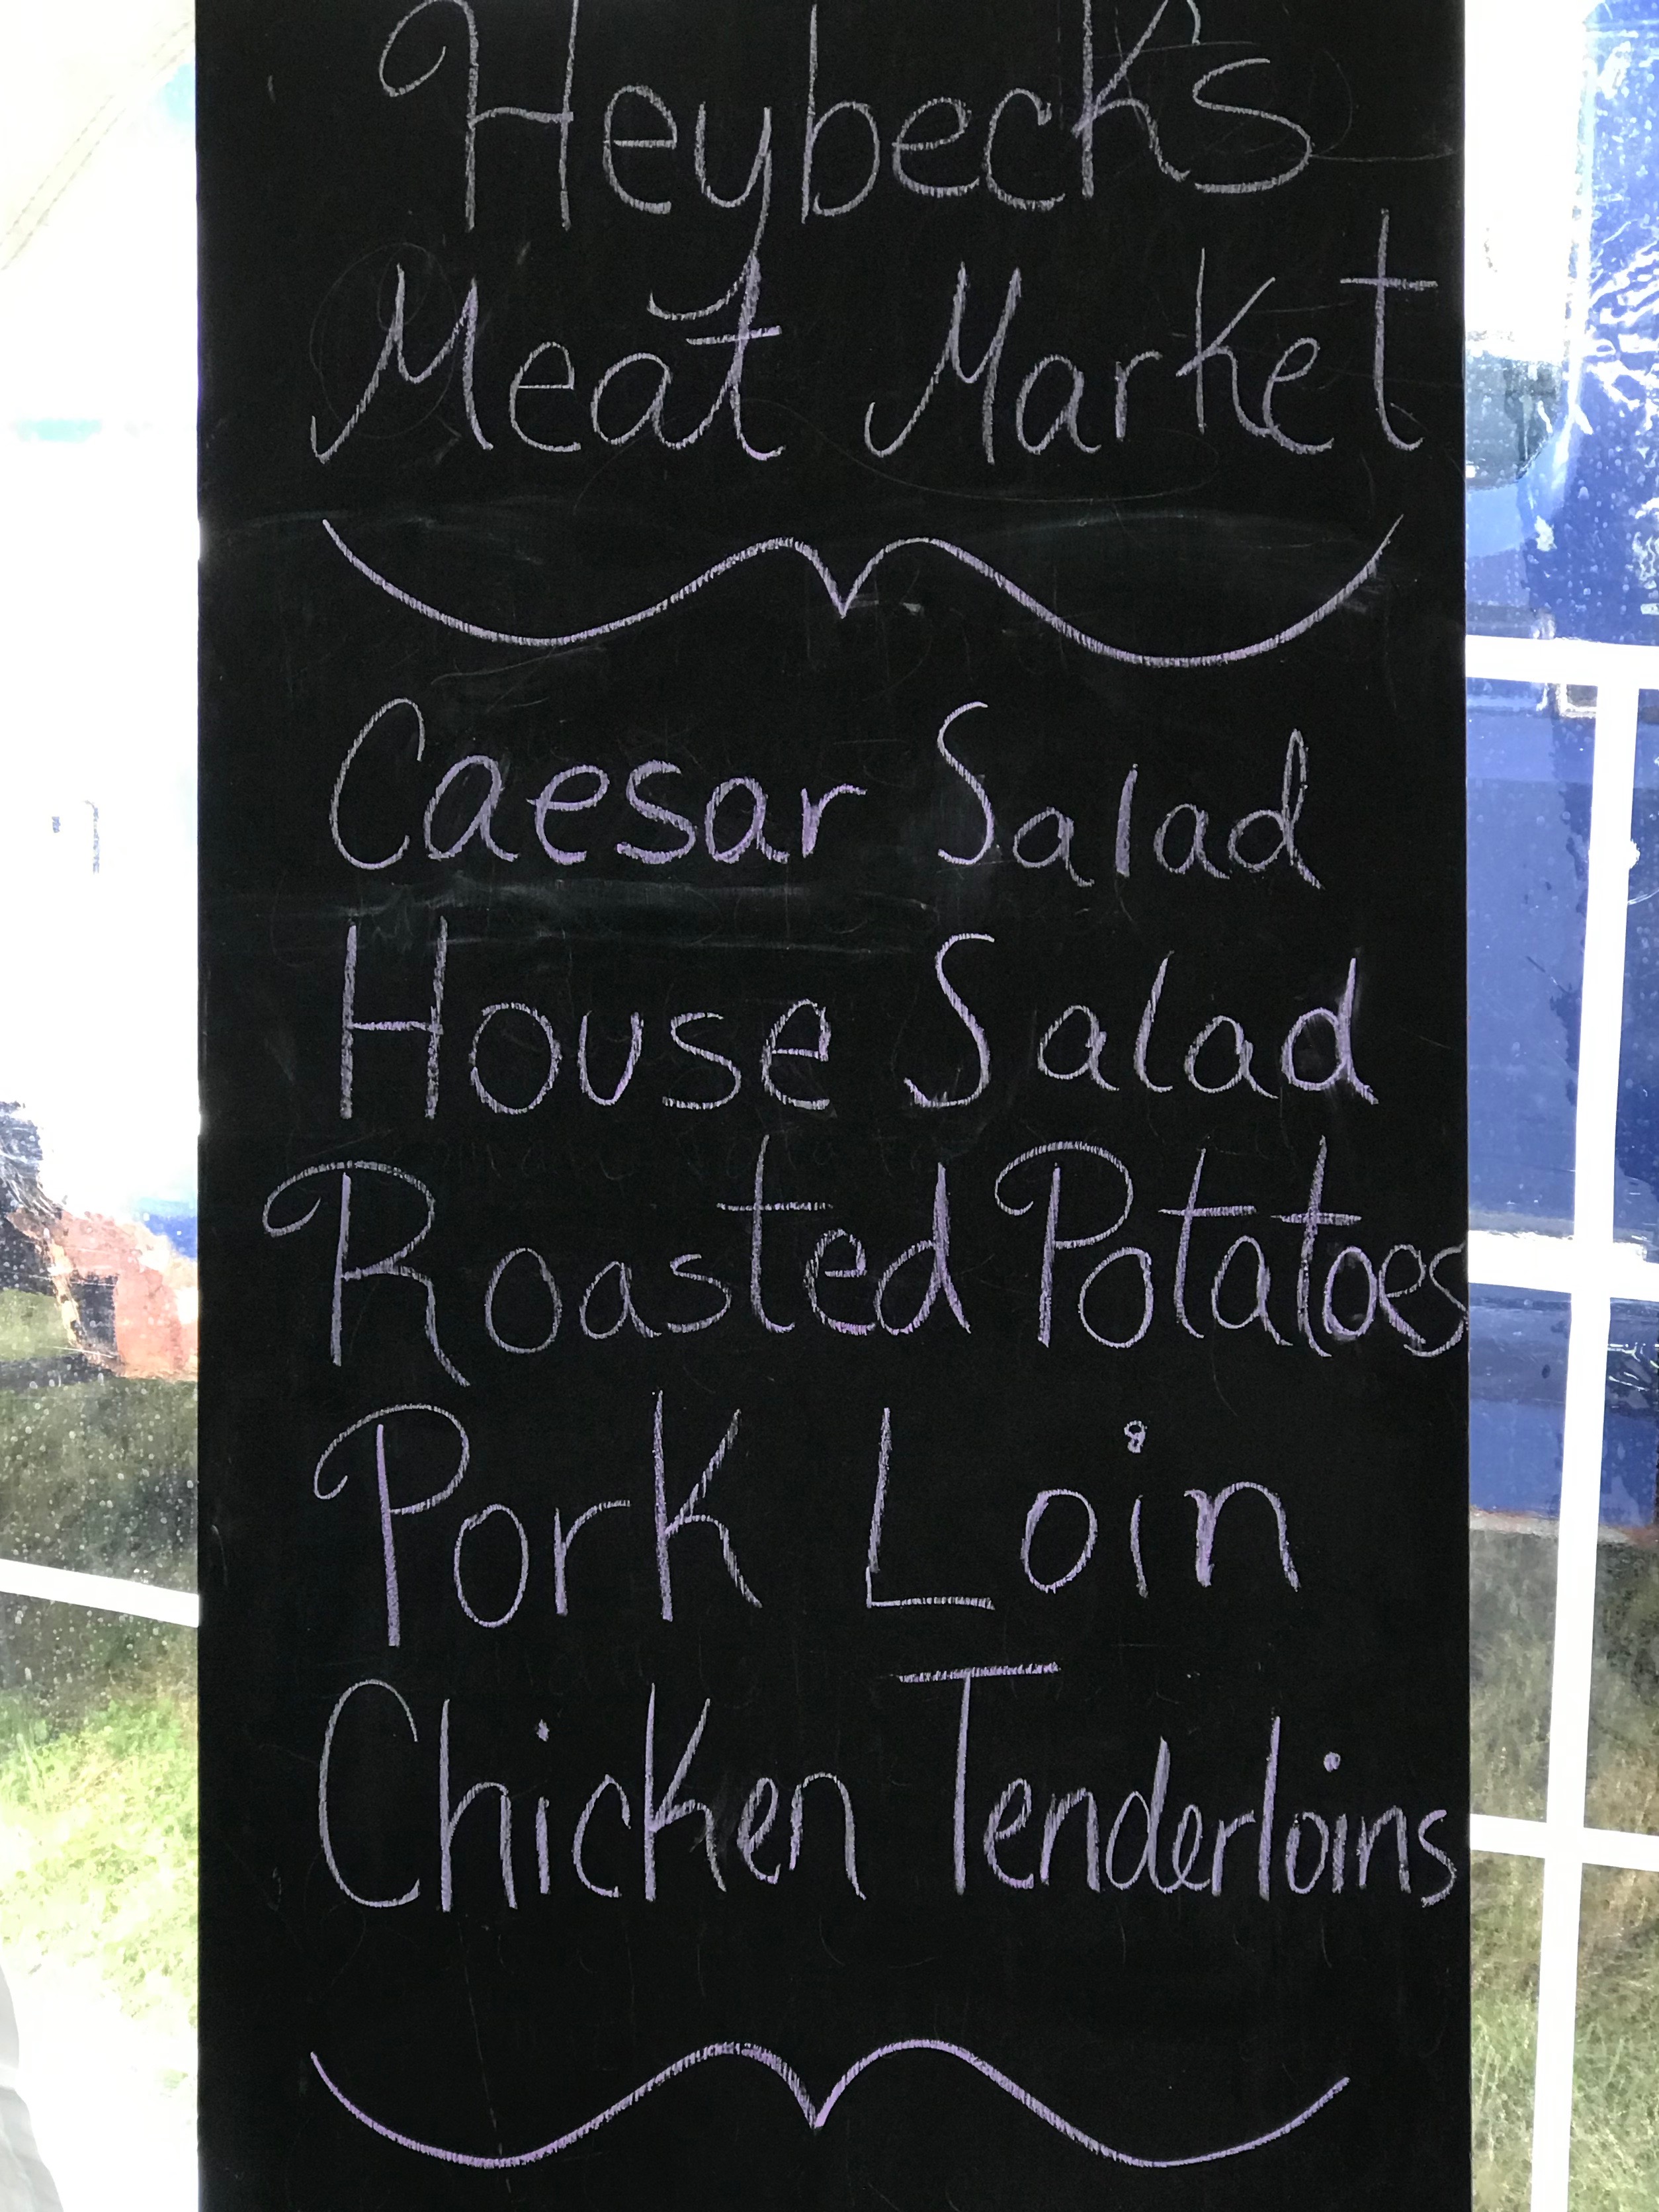 Heybecks
Meat Market
Caesar Salad
House Salad
Roasted Potatoes
Pork Loin
Chicken Tenderloins